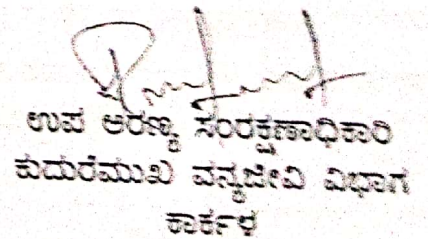 ಉಪ ಅರಣ್ಯ ಸಂರಕ್ಷಣಾಧಿಕಾರಿ
ಕುದುರೆಮುಖ ವನ್ಯಜೀವಿ ವಿಭಾಗ
ಕಾರ್ಕಳ